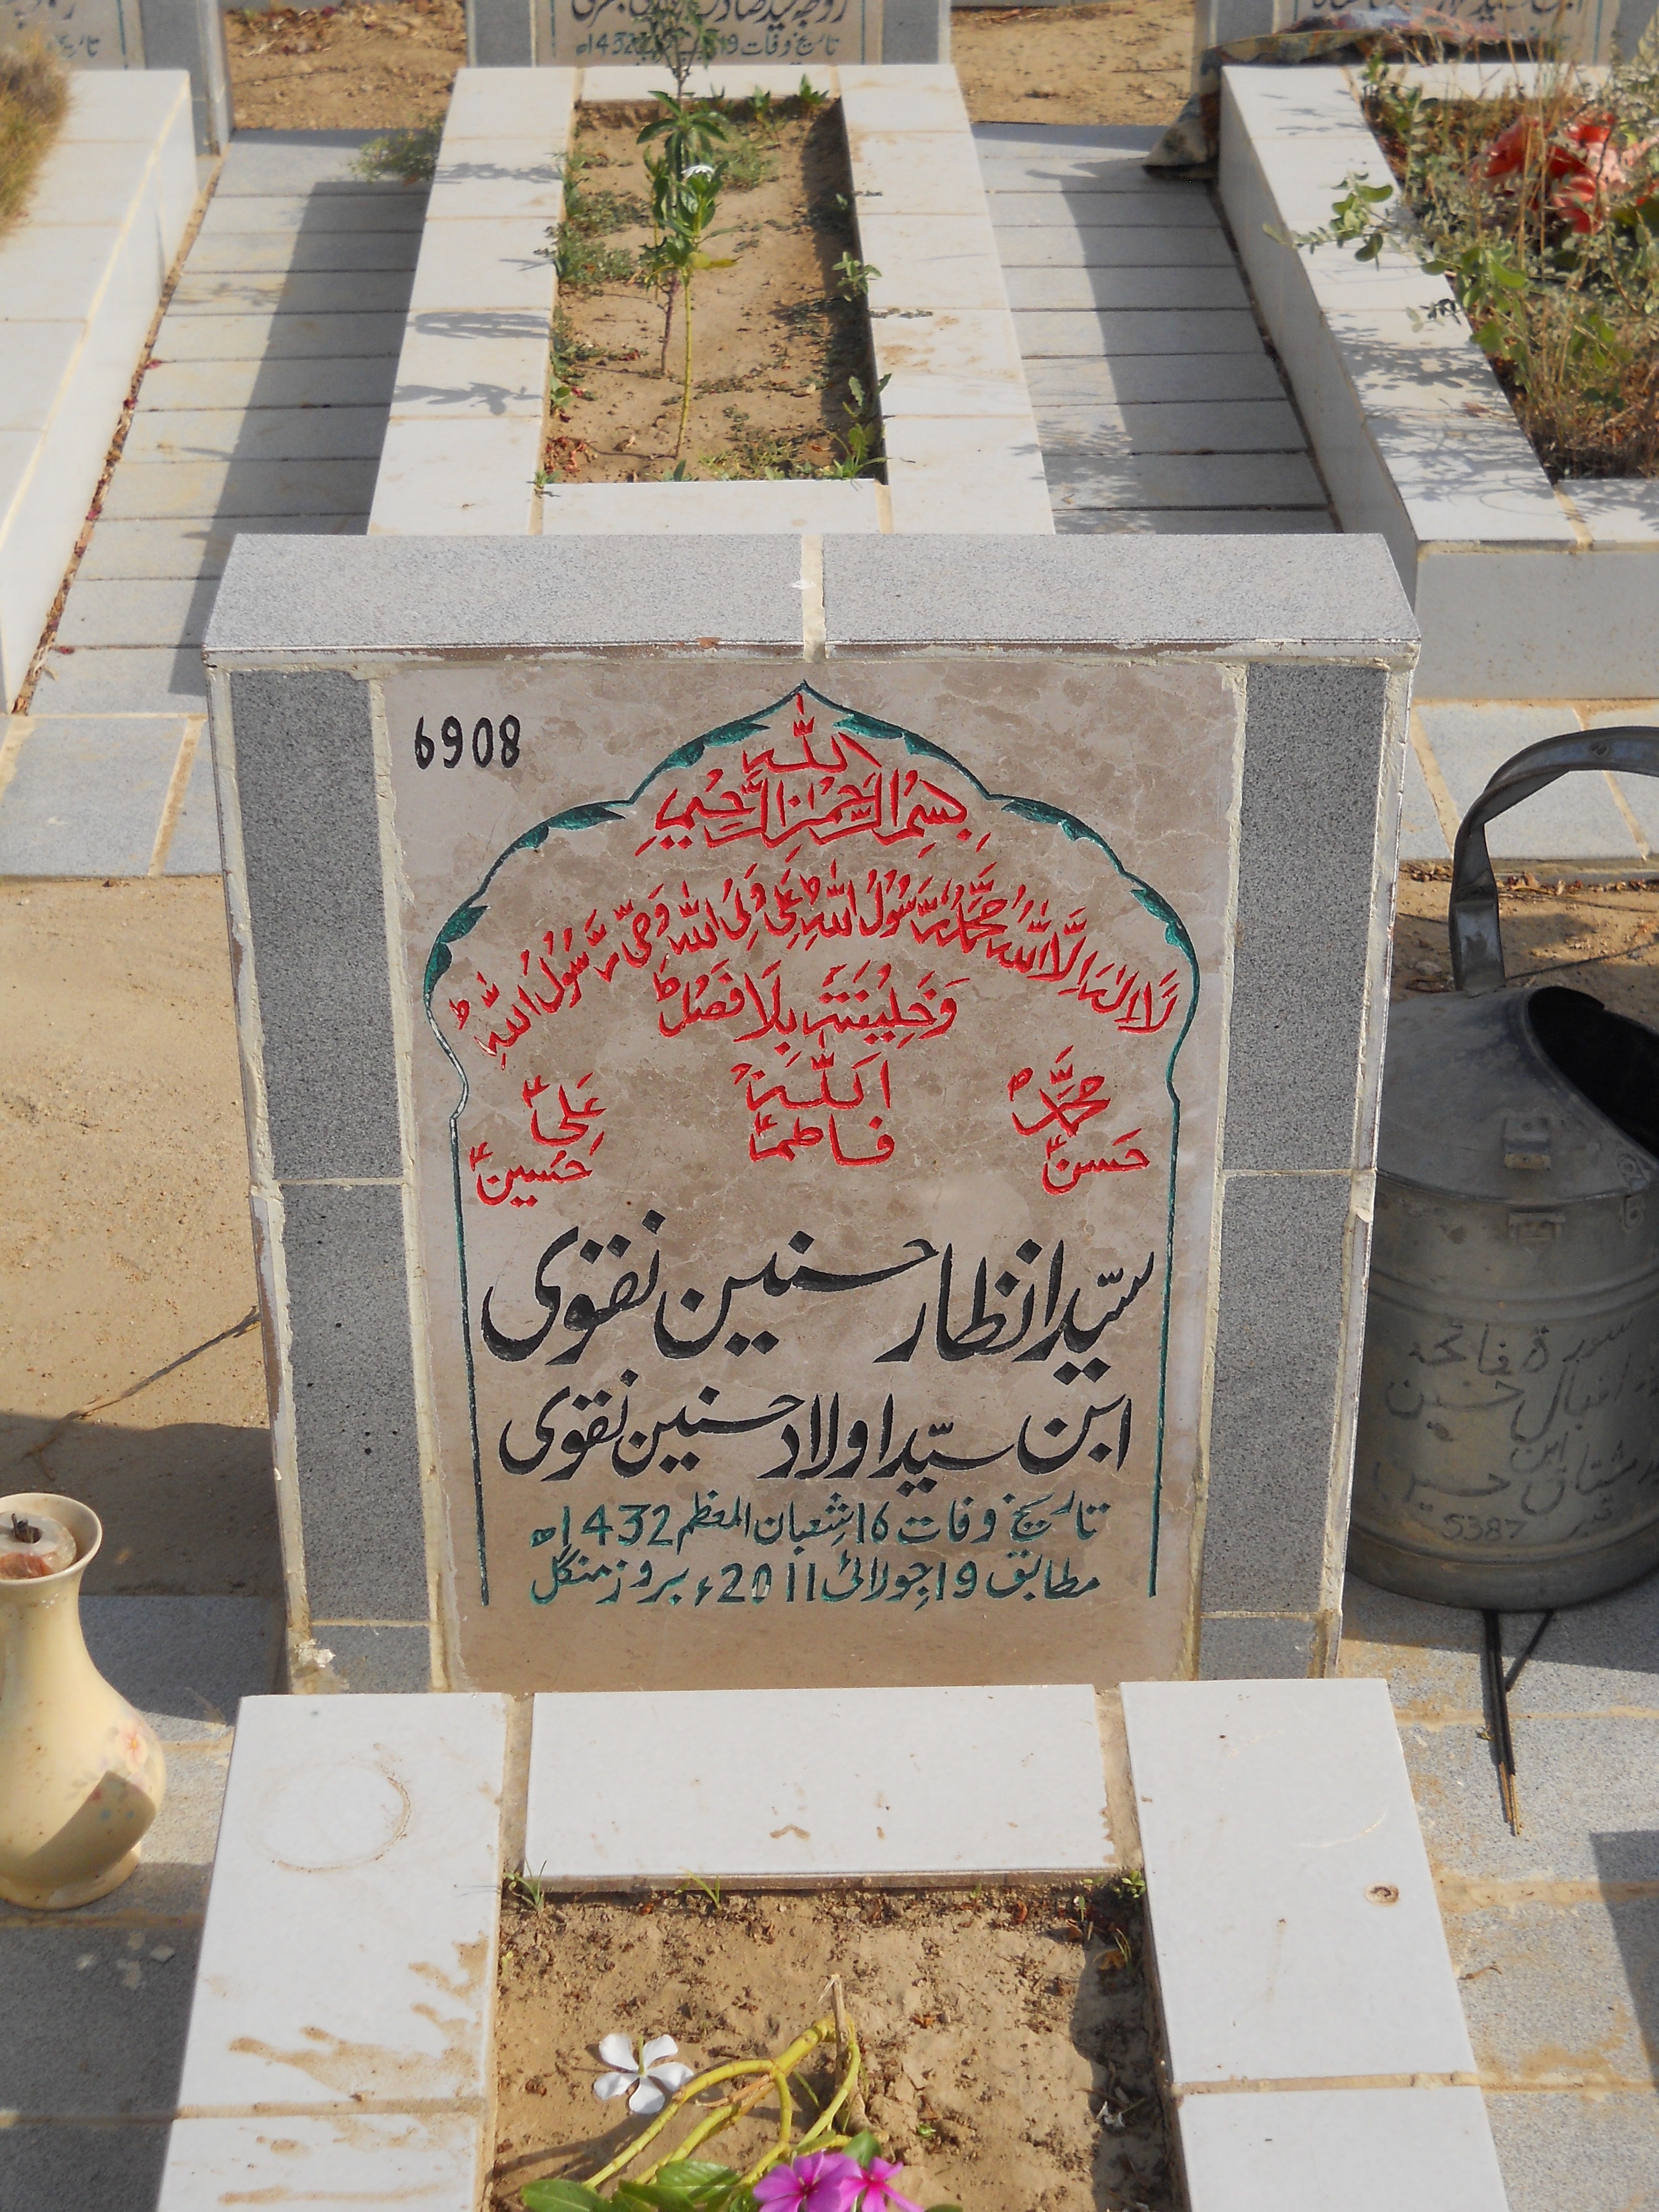 زوجہ سید صادق
تاریخ وفات 19
1432ھ
6908
بسم اللہ الرحمٰن الرحیم
لَا اِلٰہَ اِلَّا اللہُ مُحَمَّدٌ رَّسُوْلُ اللہِ عَلِیٌّ وَّلِیُّ اللہِ وَصِیُّ رَسُوْلِ اللہِ
وَخَلِیْفَتُہٗ بِلَا فَصْلٍ
محمدؐ اللہ علیؑ
حسنؑ فاطمہؑ حسینؑ
سیّد انظار حسنین نقوی
ابن سیّد اولاد حسنین نقوی
تاریخ وفات 16 شعبان المعظم 1432ھ
مطابق 19 جولائی 2011ء بروز منگل
سورۃ فاتحہ
اقبال حسین
ابن
مشتاق حسین
قبر 5387